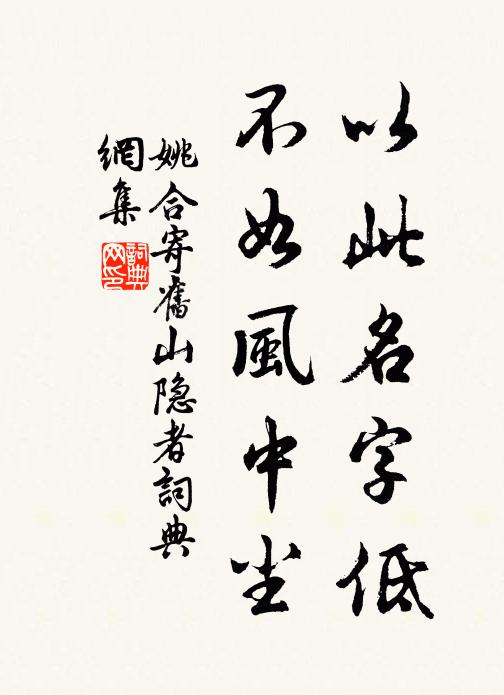 以此名字低
不如風中尘
姚合寄舊山隐者詞典
網集
詞典
网印